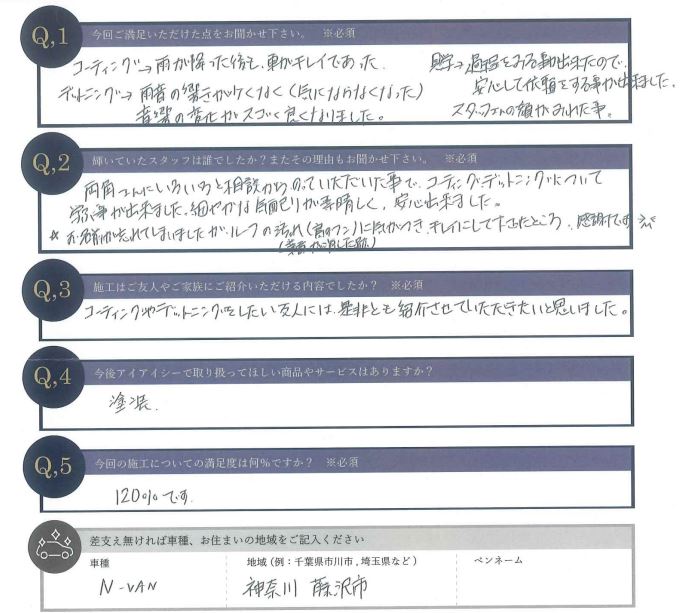 Q,1 今回ご満足いただけた点をお聞かせ下さい。 ※必須
コーティング→雨が降った後も、車がキレイであった。 見学→過程をみる事出来たので、
デッドニング→雨音の響きがなくなく(気にならなくなった) 安心して依頼をする事が出来ました。
音響の変化がスゴく良くなりました。 スタッフさんの顔がみれた事。
Q,2 輝いていたスタッフは誰でしたか?またその理由もお聞かせ下さい。 ※必須
両角さんにいろいろと相談からのっていただいた事で、コーティング・デットニングについて
学ぶ事が出来ました。細やかな気配りが素晴しく、安心出来ました。
☆お名前が忘れてしまいましたが、ルーフの汚れ(鳥のフン)に気がつき、キレイにして下さったところ、感謝です
Q,3 施工はご友人やご家族にご紹介いただける内容でしたか? ※必須
コーティングやデットニングをしたい友人には、是非とも紹介させていただきたいと思いました。
Q,4 今後アイアイシーで取り扱ってほしい商品やサービスはありますか?
塗装.
Q,5 今回の施工についての満足度は何%ですか? ※必須
120%です.
差支え無ければ車種、お住まいの地域をご記入ください
車種 地域(例:千葉県市川市,埼玉県など) ペンネーム
N-VAN 神奈川 藤沢市